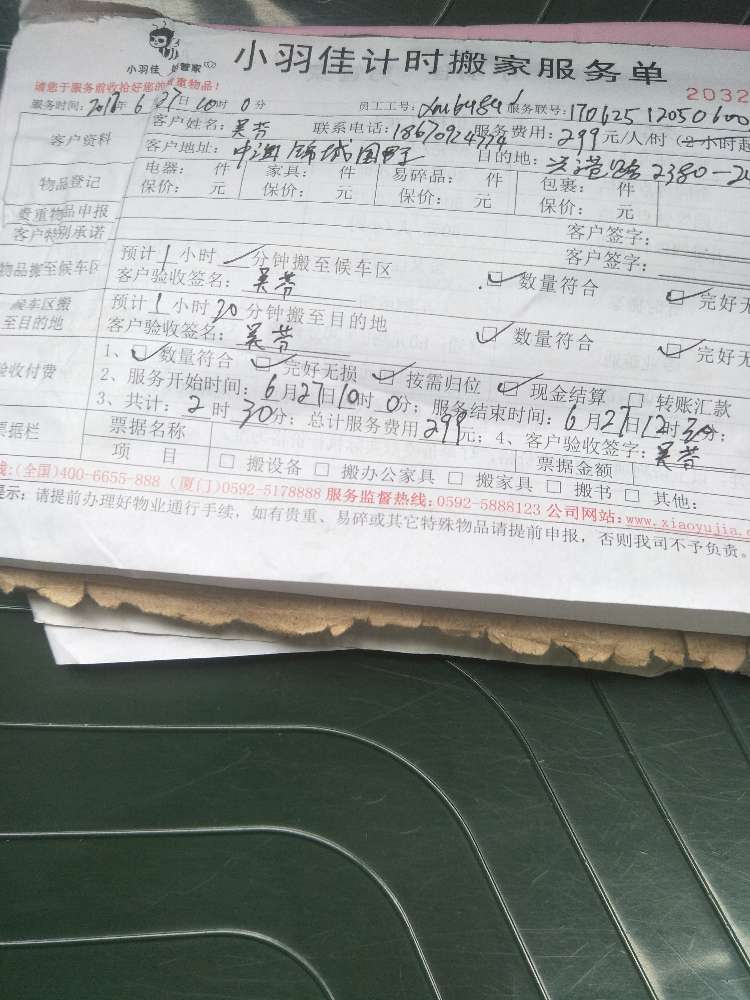 小羽佳 管家
小羽佳计时搬家服务单
请您于服务前收拾好您的贵重物品!
2032
服务时间: 2017年 6月27日 10时 0分 员工工号: 服务联号: 170625 12050600
客户资料
客户姓名: 吴芳 联系电话: 服务费用: 299元/人/时 (2小时起
客户地址: 中海锦城国际 目的地: 兴港路2380-20
物品登记
电器: 件 家具: 件 易碎品: 件 包裹: 件
保价: 元 保价: 元 保价: 元 保价: 元
贵重物品申报 客户签字:
客户特别承诺 客户签字:
物品搬至候车区
预计1小时 分钟搬至候车区
客户验收签名: 吴芳 数量符合 完好无
候车区搬至目的地
预计1小时30分钟搬至目的地
客户验收签名: 吴芳 数量符合 完好无
验收付费
1、数量符合 完好无损 按需归位 现金结算 转账汇款
2、服务开始时间: 6月27日10时 0分; 服务结束时间: 6月27日12时30分;
3、共计: 2时30分; 总计服务费用299元; 4、客户验收签字: 吴芳
票据栏
票据名称 票据金额
项目 搬设备 搬办公家具 搬家具 搬书 其他:
线:(全国)400-6655-888 (厦门)0592-5178888 服务监督热线: 0592-5888123 公司网站: www.xiaoyujia.c
提示: 请提前办理好物业通行手续, 如有贵重、易碎或其它特殊物品请提前申报, 否则我司不予负责。